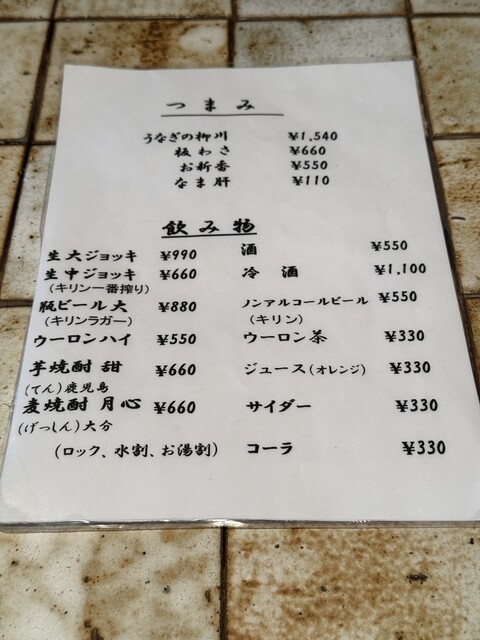 つまみ
うなぎの柳川 ¥1,540
板わさ ¥660
お新香 ¥550
なま肝 ¥110
飲み物
生大ジョッキ ¥990 酒 ¥550
生中ジョッキ ¥660 冷酒 ¥1,100
(キリン一番搾り)
瓶ビール大 ¥880 ノンアルコールビール ¥550
(キリンラガー) (キリン)
ウーロンハイ ¥550 ウーロン茶 ¥330
芋焼酎 甜 ¥660 ジュース(オレンジ) ¥330
(てん)鹿児島
麦焼酎 月心 ¥660 サイダー ¥330
(げっしん)大分
(ロック、水割、お湯割) コーラ ¥330